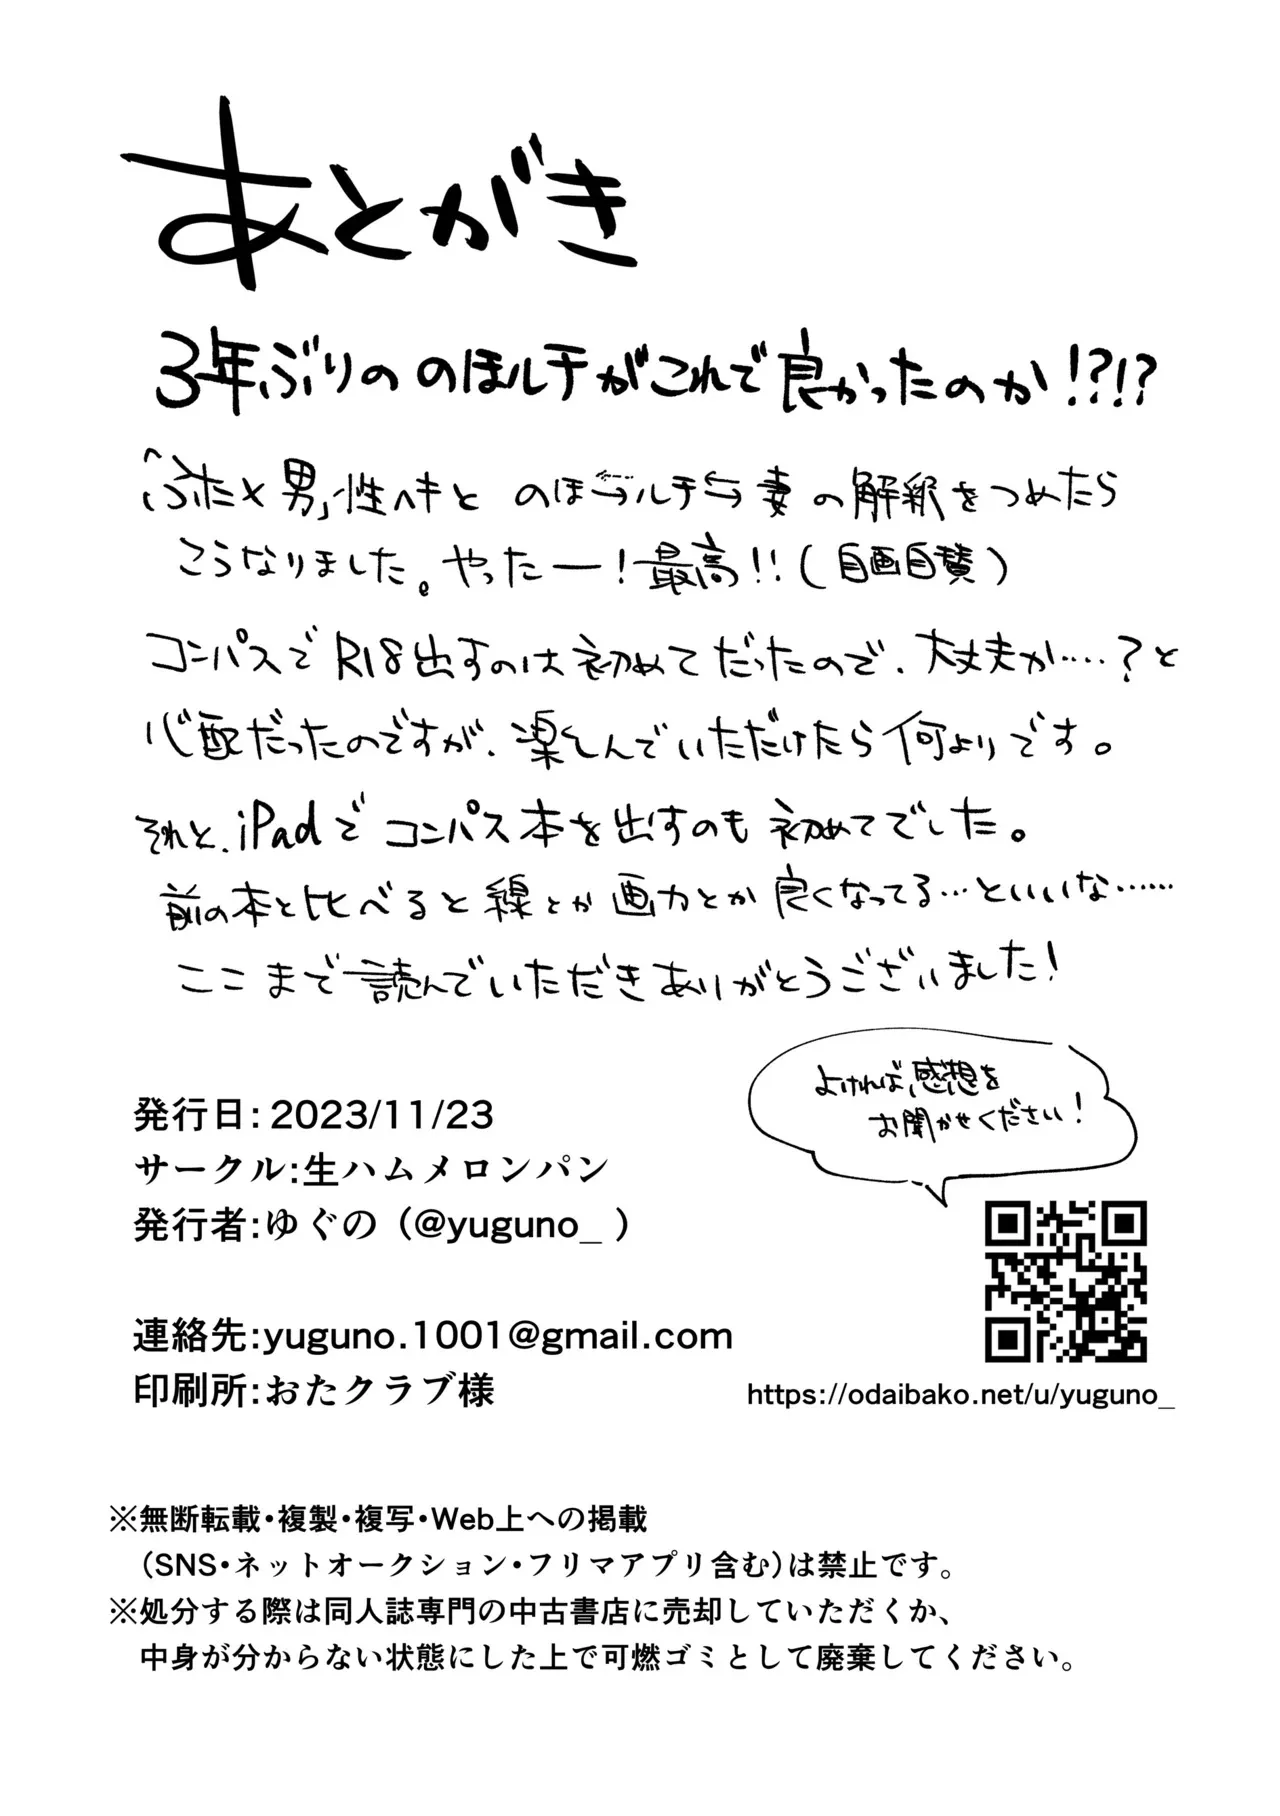 あとがき
3年ぶりの のほルチがこれで良かったのか!?!?
「ふた×男」性ヘキと のほ⇆ルチ⇆妻の解釈をつめたら
こうなりました。やったー!最高!!(自画自賛)
コンパスでR18出すのは初めてだったので、大丈夫か……?と
心配だったのですが、楽しんでいただけたら何よりです。
それと、iPadでコンパス本を出すのも初めてでした。
前の本と比べると線とか画力とか良くなってる…といいな……
ここまで読んでいただきありがとうございました!
よければ、感想を
お聞かせください!
発行日: 2023/11/23
サークル:生ハムメロンパン
発行者:ゆぐの(@yuguno_ )
連絡先:yuguno.1001@gmail.com
印刷所:おたクラブ様
https://odaibako.net/u/yuguno_
※無断転載・複製・複写・Web上への掲載
(SNS・ネットオークション・フリマアプリ含む)は禁止です。
※処分する際は同人誌専門の中古書店に売却していただくか、
中身が分からない状態にした上で可燃ゴミとして廃棄してください。